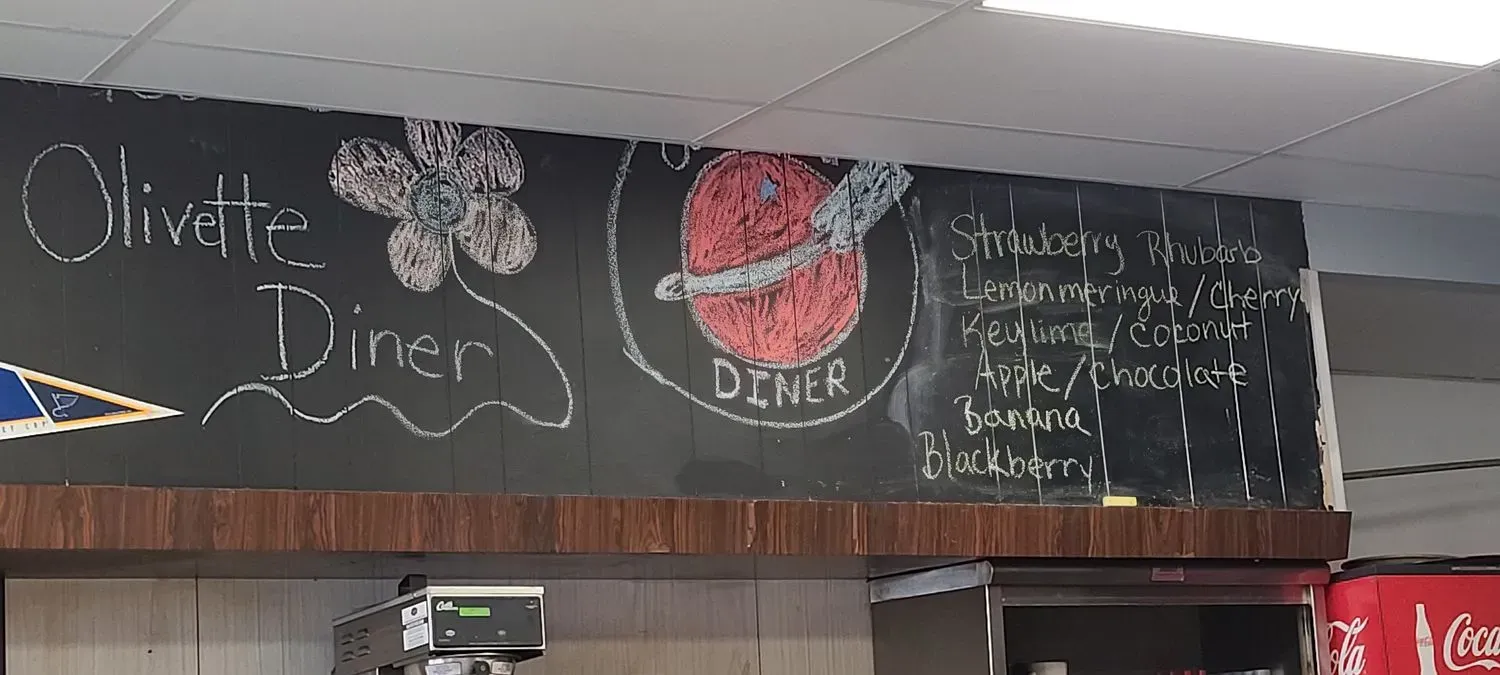 Olivette
Diner
DINER
Strawberry Rhubarb
Lemonmeringue/Cherry
Keylime/coconut
Apple/chocolate
Banana
Blackberry
Coca